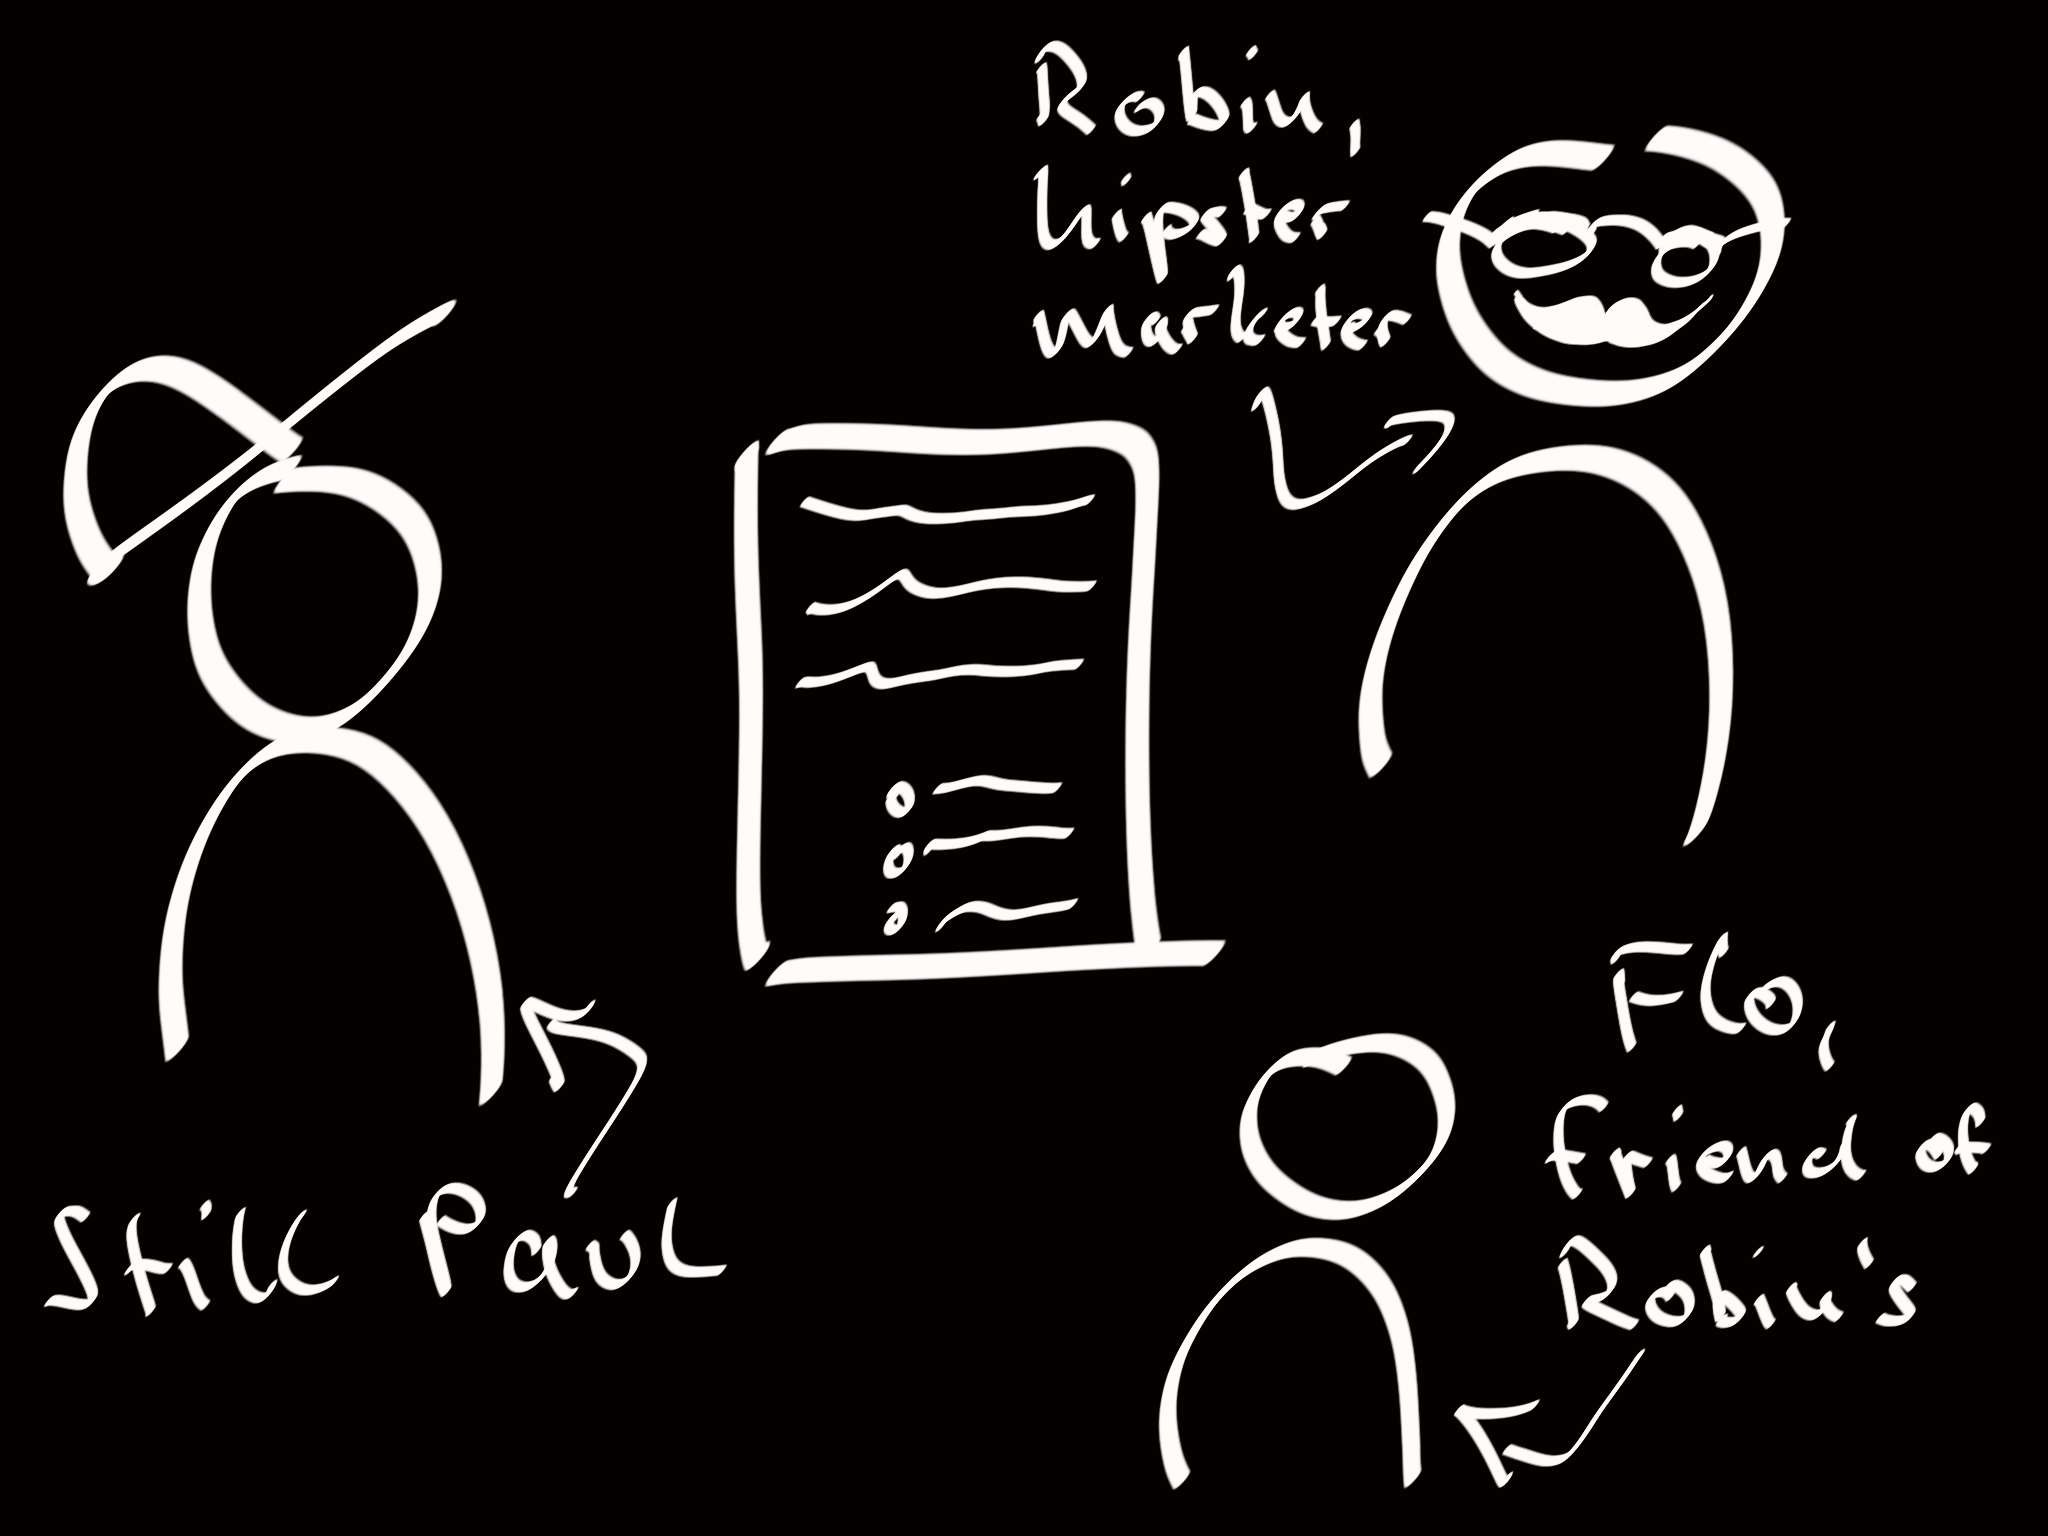 Robin,
hipster
marketer
Still Paul
Flo,
friend of
Robin's